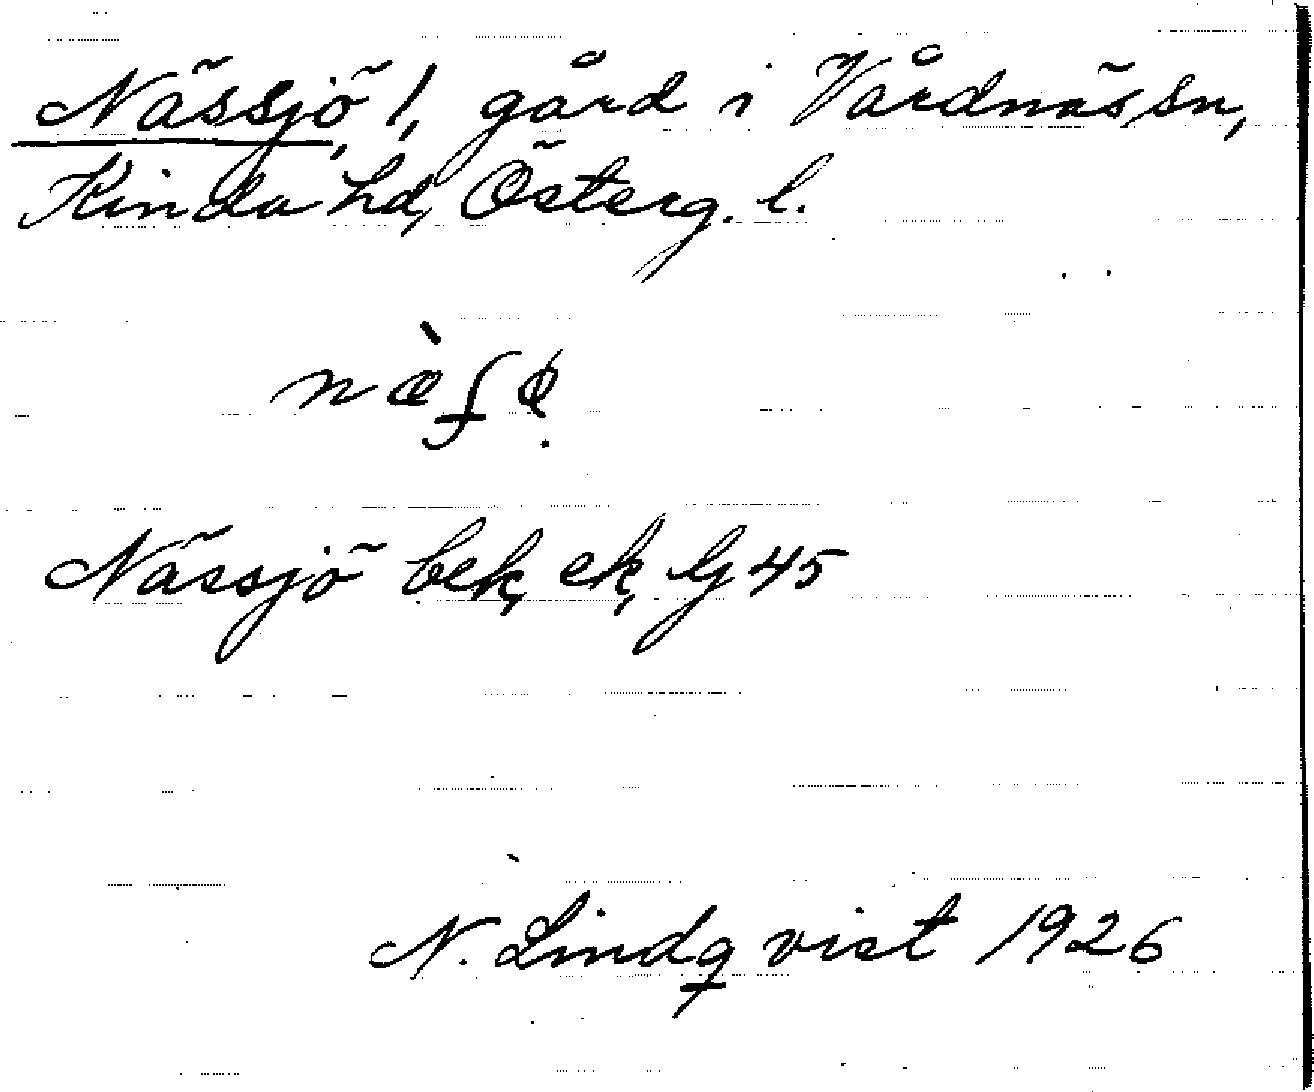 Nässjö, 1, gård i Vårdnäs sn,
Kinda hd, Österg. l.
Nässjö bek, ek, Gj 45
N. Lindqvist 1926